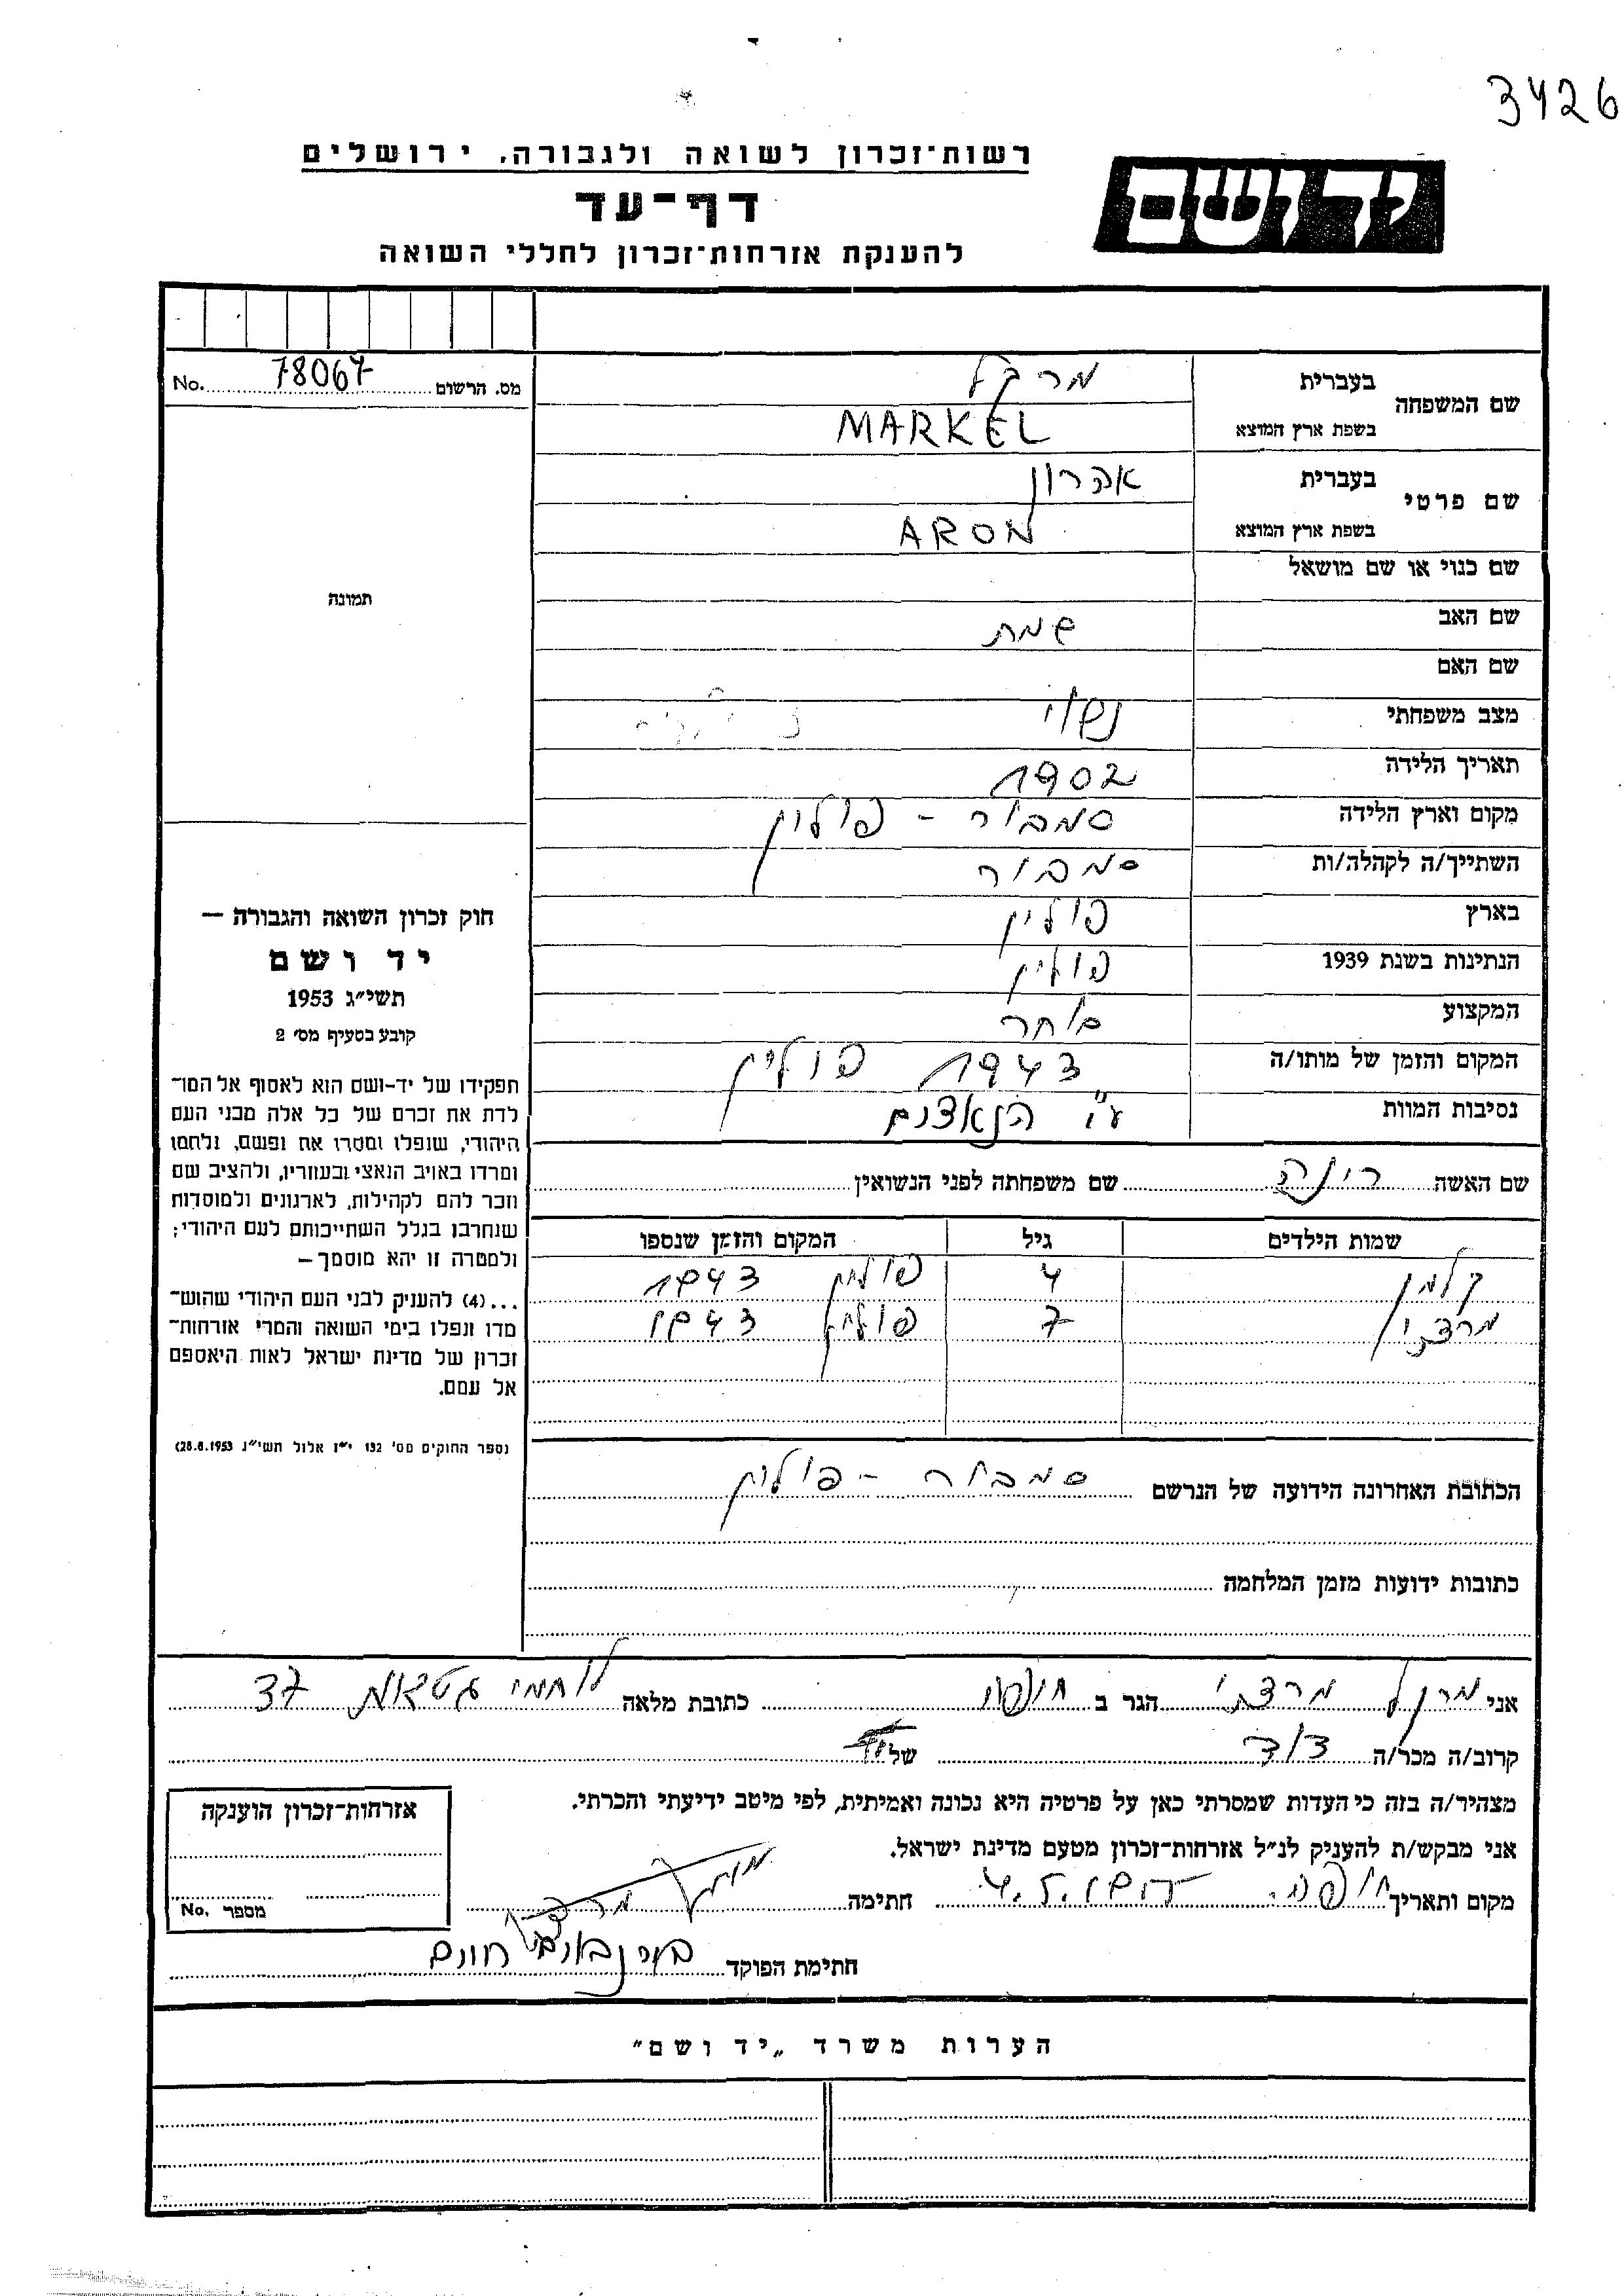 3426
יד ושם
רשות־זכרון לשואה ולגבורה, ירושלים
דף־עד
להענקת אזרחות־זכרון לחללי השואה
שם המשפחה
בעברית
מרקל
בשפת ארץ המוצא
MARKEL
שם פרטי
בעברית
אהרון
בשפת ארץ המוצא
ARON
שם כנוי או שם מושאל
שם האב
שם האם
מצב משפחתי נשוי
תאריך הלידה 1902
מקום וארץ הלידה סמבור - פולין
השתייך/ה לקהלה/ות סמבור
בארץ פולין
הנתינות בשנת 1939 פולין
המקצוע סוחר
המקום והזמן של מותו/ה 1943 פולין
נסיבות המוות ע"י הנאצים
מס. הרשום 78067 No.
תמונה
חוק זכרון השואה והגבורה —
יד ושם
תשי״ג 1953
קובע בסעיף מס׳ 2
תפקידו של יד-ושם הוא לאסוף אל המו־
לדת את זכרם של כל אלה מבני העם
היהודי, שנפלו ומסרו את נפשם, נלחמו
ומרדו באויב הנאצי ובעוזריו, ולהציב שם
וזכר להם לקהילות, לארגונים ולמוסדות
שנחרבו בגלל השתייכותם לעם היהודי;
ולמטרה זו יהא מוסמך—
...(4) להעניק לבני העם היהודי שהוש־
מדו ונפלו בימי השואה והמרי אזרחות־
זכרון של מדינת ישראל לאות היאספם
אל עמם.
(ספר החוקים מס׳ 132 י״ז אלול תשי״ג 28.8.1953)
שם האשה רינה שם משפחתה לפני הנשואין
שמות הילדים גיל המקום והזמן שנספו
קלמן 4 פולין 1943
7 פולין 1943
הכתובת האחרונה הידועה של הנרשם סמבור - פולין
כתובות ידועות מזמן המלחמה
אני מרקל הגר ב חיפה כתובת מלאה לוחמי גטאות 37
קרוב/ה מכר/ה דוד של
מצהיר/ה בזה כי העדות שמסרתי כאן על פרטיה היא נכונה ואמיתית, לפי מיטב ידיעתי והכרתי.
אני מבקש/ת להעניק לנ״ל אזרחות־זכרון מטעם מדינת ישראל.
מקום ותאריך חיפה חתימה
חתימת הפוקד
אזרחות־זכרון הוענקה
מספר No.
הערות משרד „יד ושם״